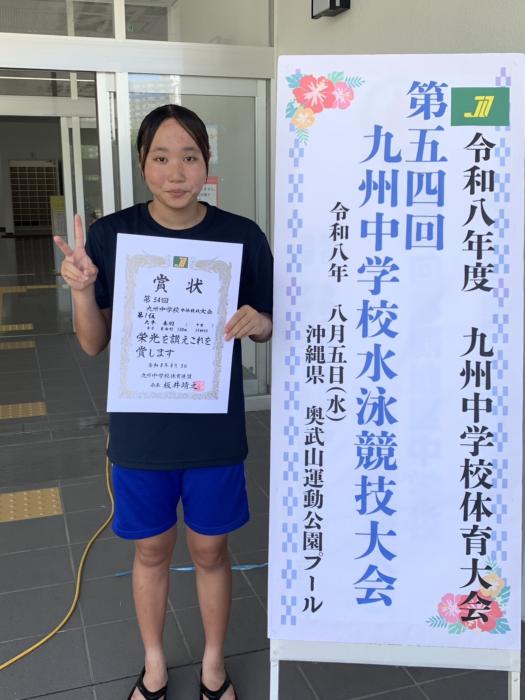 令和八年度 九州中学校体育大会
第五四回
九州中学校水泳競技大会
令和八年 八月五日(水)
沖縄県 奥武山運動公園プール
賞状
第54回
九州中学校水泳競技大会
第1位
栄光を讃えこれを
賞します
九州中学校体育連盟
会長 板井靖之